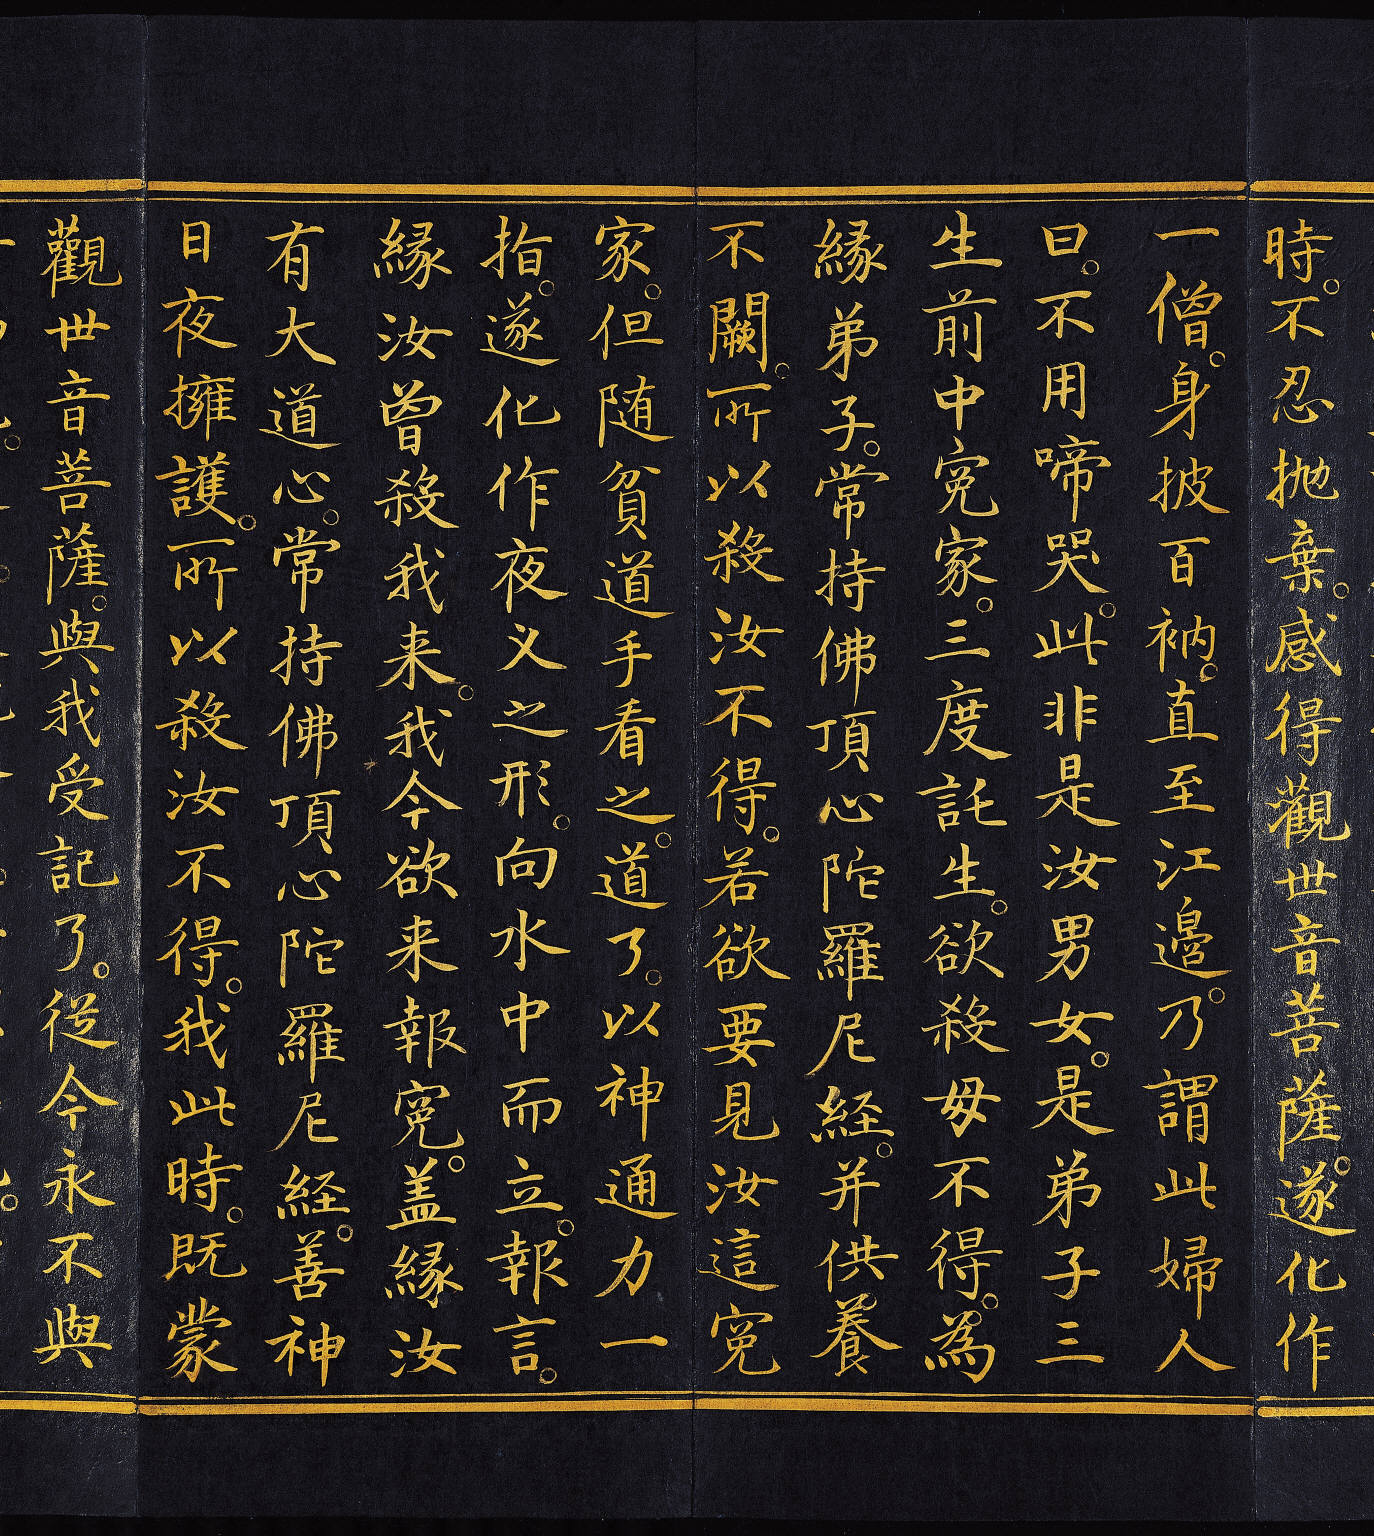 時。不忍抛棄。感得觀世音菩薩。遂化作
一僧。身披百衲。直至江邊。乃謂此婦人
曰。不用啼哭。此非是汝男女。是弟子三
生前中寃家。三度託生。欲殺毋不得。為
縁弟子。常持佛頂心陀羅尼経。并供養
不闕。所以殺汝不得。若欲要見汝這寃
家。但随貧道手看之。道了。以神通力一
指。遂化作夜义之形。向水中而立。報言。
縁汝曾殺我来。我今欲来報寃。盖縁汝
有大道心。常持佛頂心陀羅尼経。善神
日夜擁護。所以殺汝不得。我此時。既蒙
觀世音菩薩。與我受記了。從今永不與